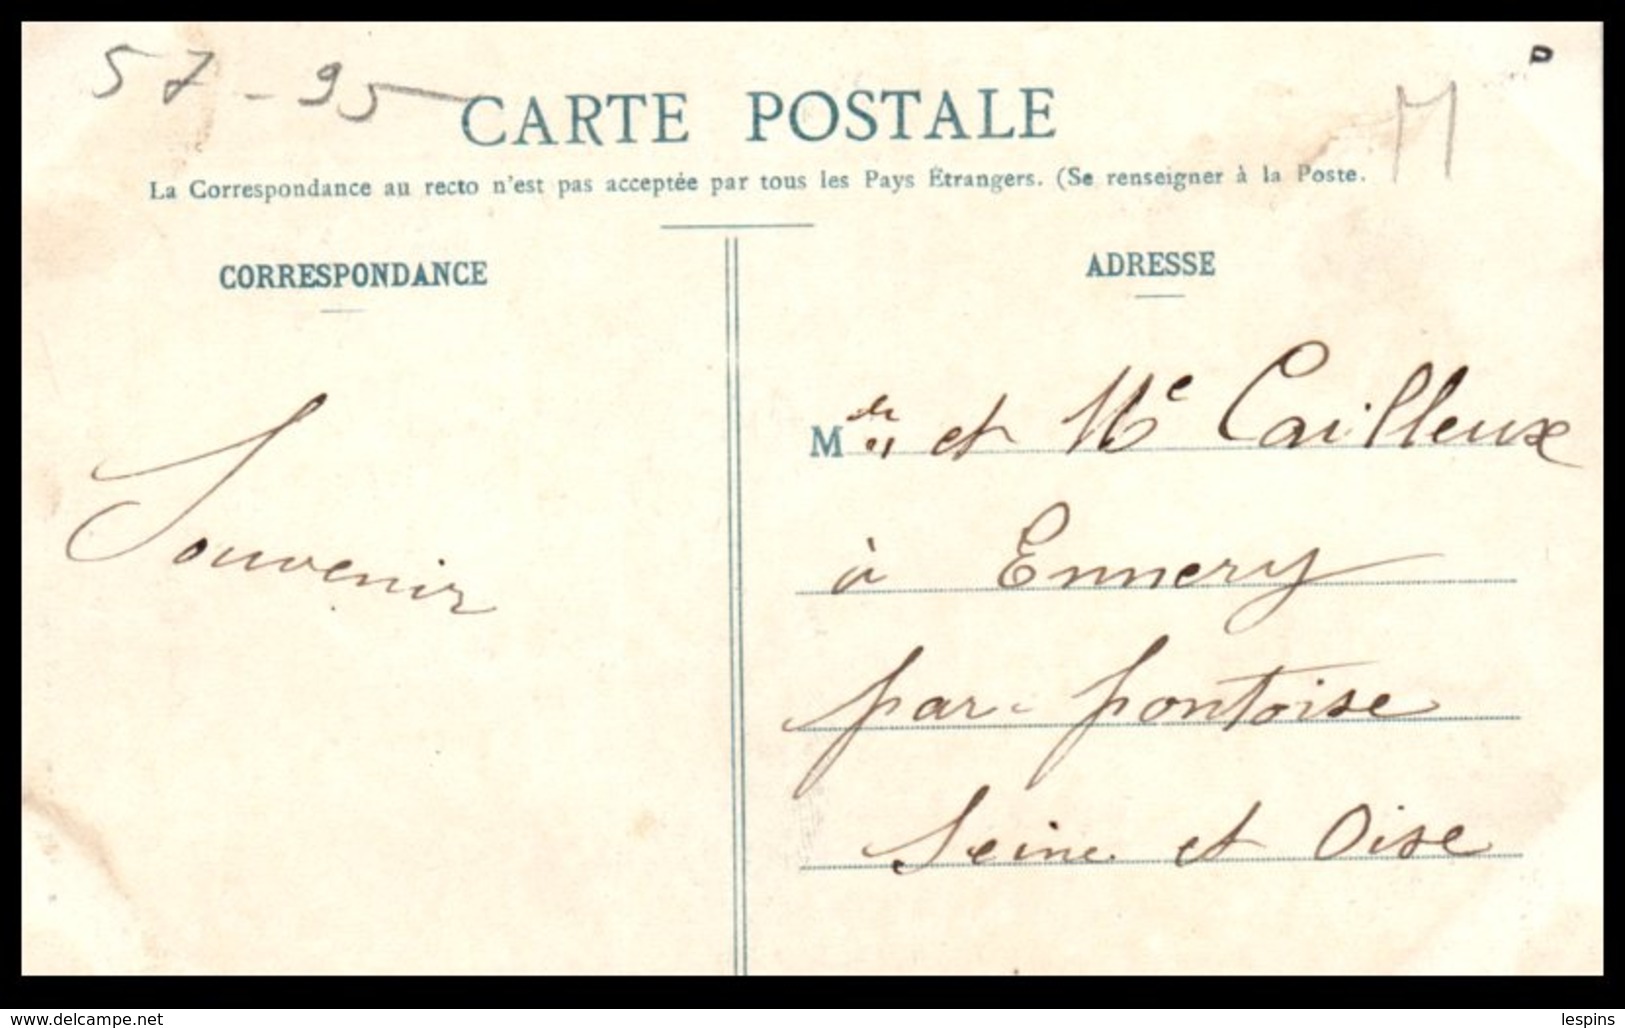 57-95
CARTE POSTALE
M
La Correspondance au recto n'est pas acceptée par tous les Pays Étrangers. (Se renseigner à la Poste.
CORRESPONDANCE
Souvenir
ADRESSE
M et Me Cailleux
à Ennery
par Pontoise
Seine et Oise
www.delcampe.net
lespins